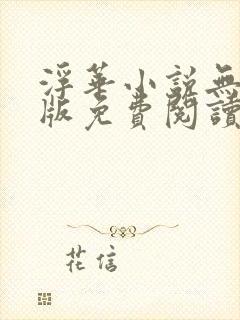 浮華小說無
版免費閱讀
花信